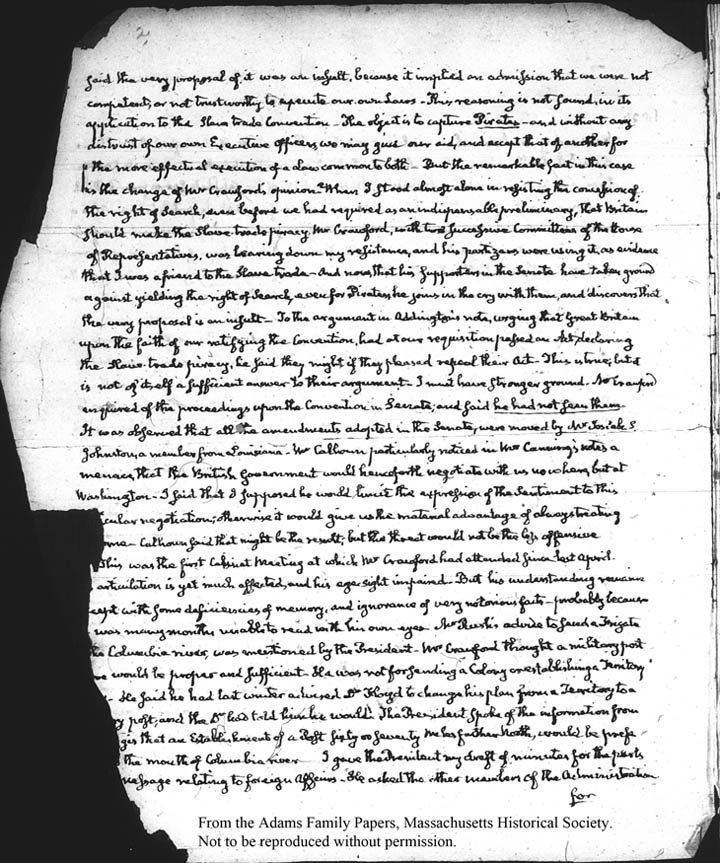 2
said the very proposal of it was an insult, because it implied an admission that we were not
competent, or not trustworthy to execute our own Laws - This reasoning is not sound, in its
application to the Slave trade Convention - The object is to capture Pirates - and without any
distrust of our own Executive officers, we may give our aid, and accept that of another for
the more effectual execution of a Law common to both - But the remarkable fact in this case
is the change of Mr Crawford's opinion. When I stood almost alone in resisting the concession of
the right of Search, even before we had required as an indispensable preliminary, that Britain
should make the Slave trade piracy, Mr Crawford, with two successive Committees of the House
of Representatives, was bearing down my resistance, and his partizans were using it, as evidence
that I was a friend to the Slave trade - And now, that his supporters in the Senate have taken ground
against yielding the right of Search, even for Pirates, he joins in the cry with them, and discovers that
the very proposal is an insult - To the argument in Addington's note, urging that Great Britain
upon the faith of our ratifying the Convention, had at our requisition passed an Act, declaring
the Slave-trade piracy, he said they might if they pleased repeal their Act - This is true, but
is not of itself a sufficient answer to their argument - I must have stronger ground. Mr Crawford
enquired of the proceedings upon the Convention in Senate, and said he had not seen them.
It was observed that all the amendments adopted in the Senate, were moved by Mr Josiah S.
Johnston, a member from Louisiana - Mr Calhoun particularly noticed in Mr Canning's notes a
menace, that the British Government would henceforth negotiate with us no where, but at
Washington - I said that I supposed he would limit the expression of the Sentiment to this
icular negotiation; otherwise it would give us the material advantage of always treating
ome - Calhoun said that might be the result; but the threat would not be the less offensive
This was the first Cabinet Meeting at which Mr Crawford had attended since last April.
articulation is yet much affected, and his eye sight impaired - But his understanding remains
cept with some deficiencies of memory, and ignorance of very notorious facts - probably because
was many months unable to read with his own eyes - Mr Rush's advice to send a Frigate
Columbia river, was mentioned by the President - Mr Crawford thought a military post
would be proper and sufficient - He was not for sending a Colony or establishing a Territory
- He said he had last winter advised Dr Floyd to change his plan from a Territory to a
ry post, and the Dr had told him he would. The President spoke of the information from
gis that an Establishment of a Post fifty or seventy miles further North, would be prefe-
the mouth of Columbia river - I gave the President my draft of minutes for the parts
message relating to foreign Affairs - He asked the other members of the Administration
for
From the Adams Family Papers, Massachusetts Historical Society.
Not to be reproduced without permission.